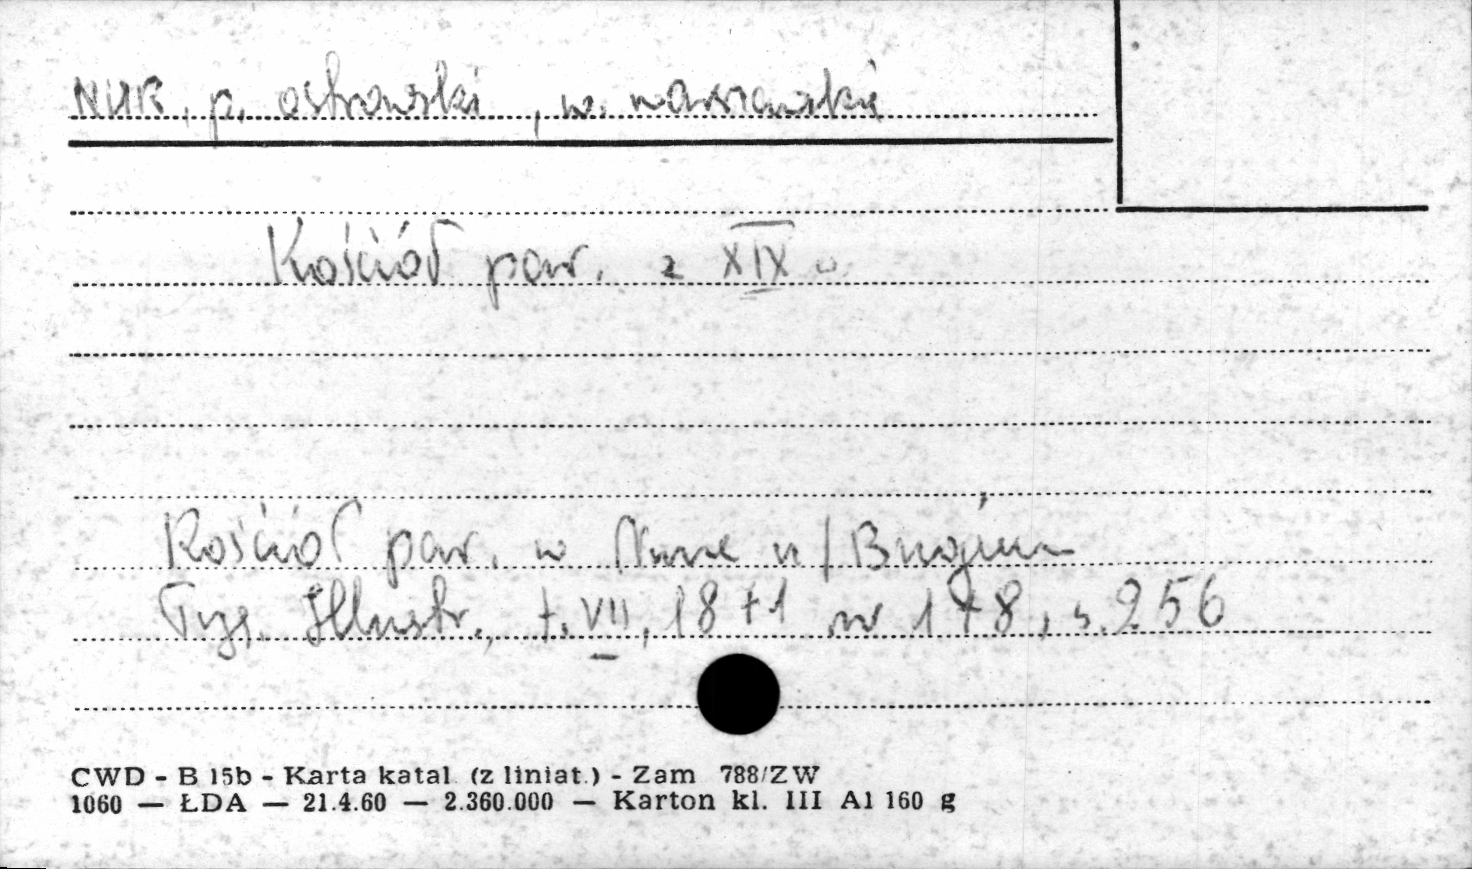 NUR, p. ostrowski, w. warszawskie
Kościół par. z XIX w.
Kościół par. w Nurze n/Bugiem
Tyg. Illustr., t. VII, 1871 nr 178, s. 256
CWD - B 15b - Karta katal. (z liniat.) - Zam 788/ZW
1060 — ŁDA — 21.4.60 — 2.360.000 — Karton kl. III A1 160 g